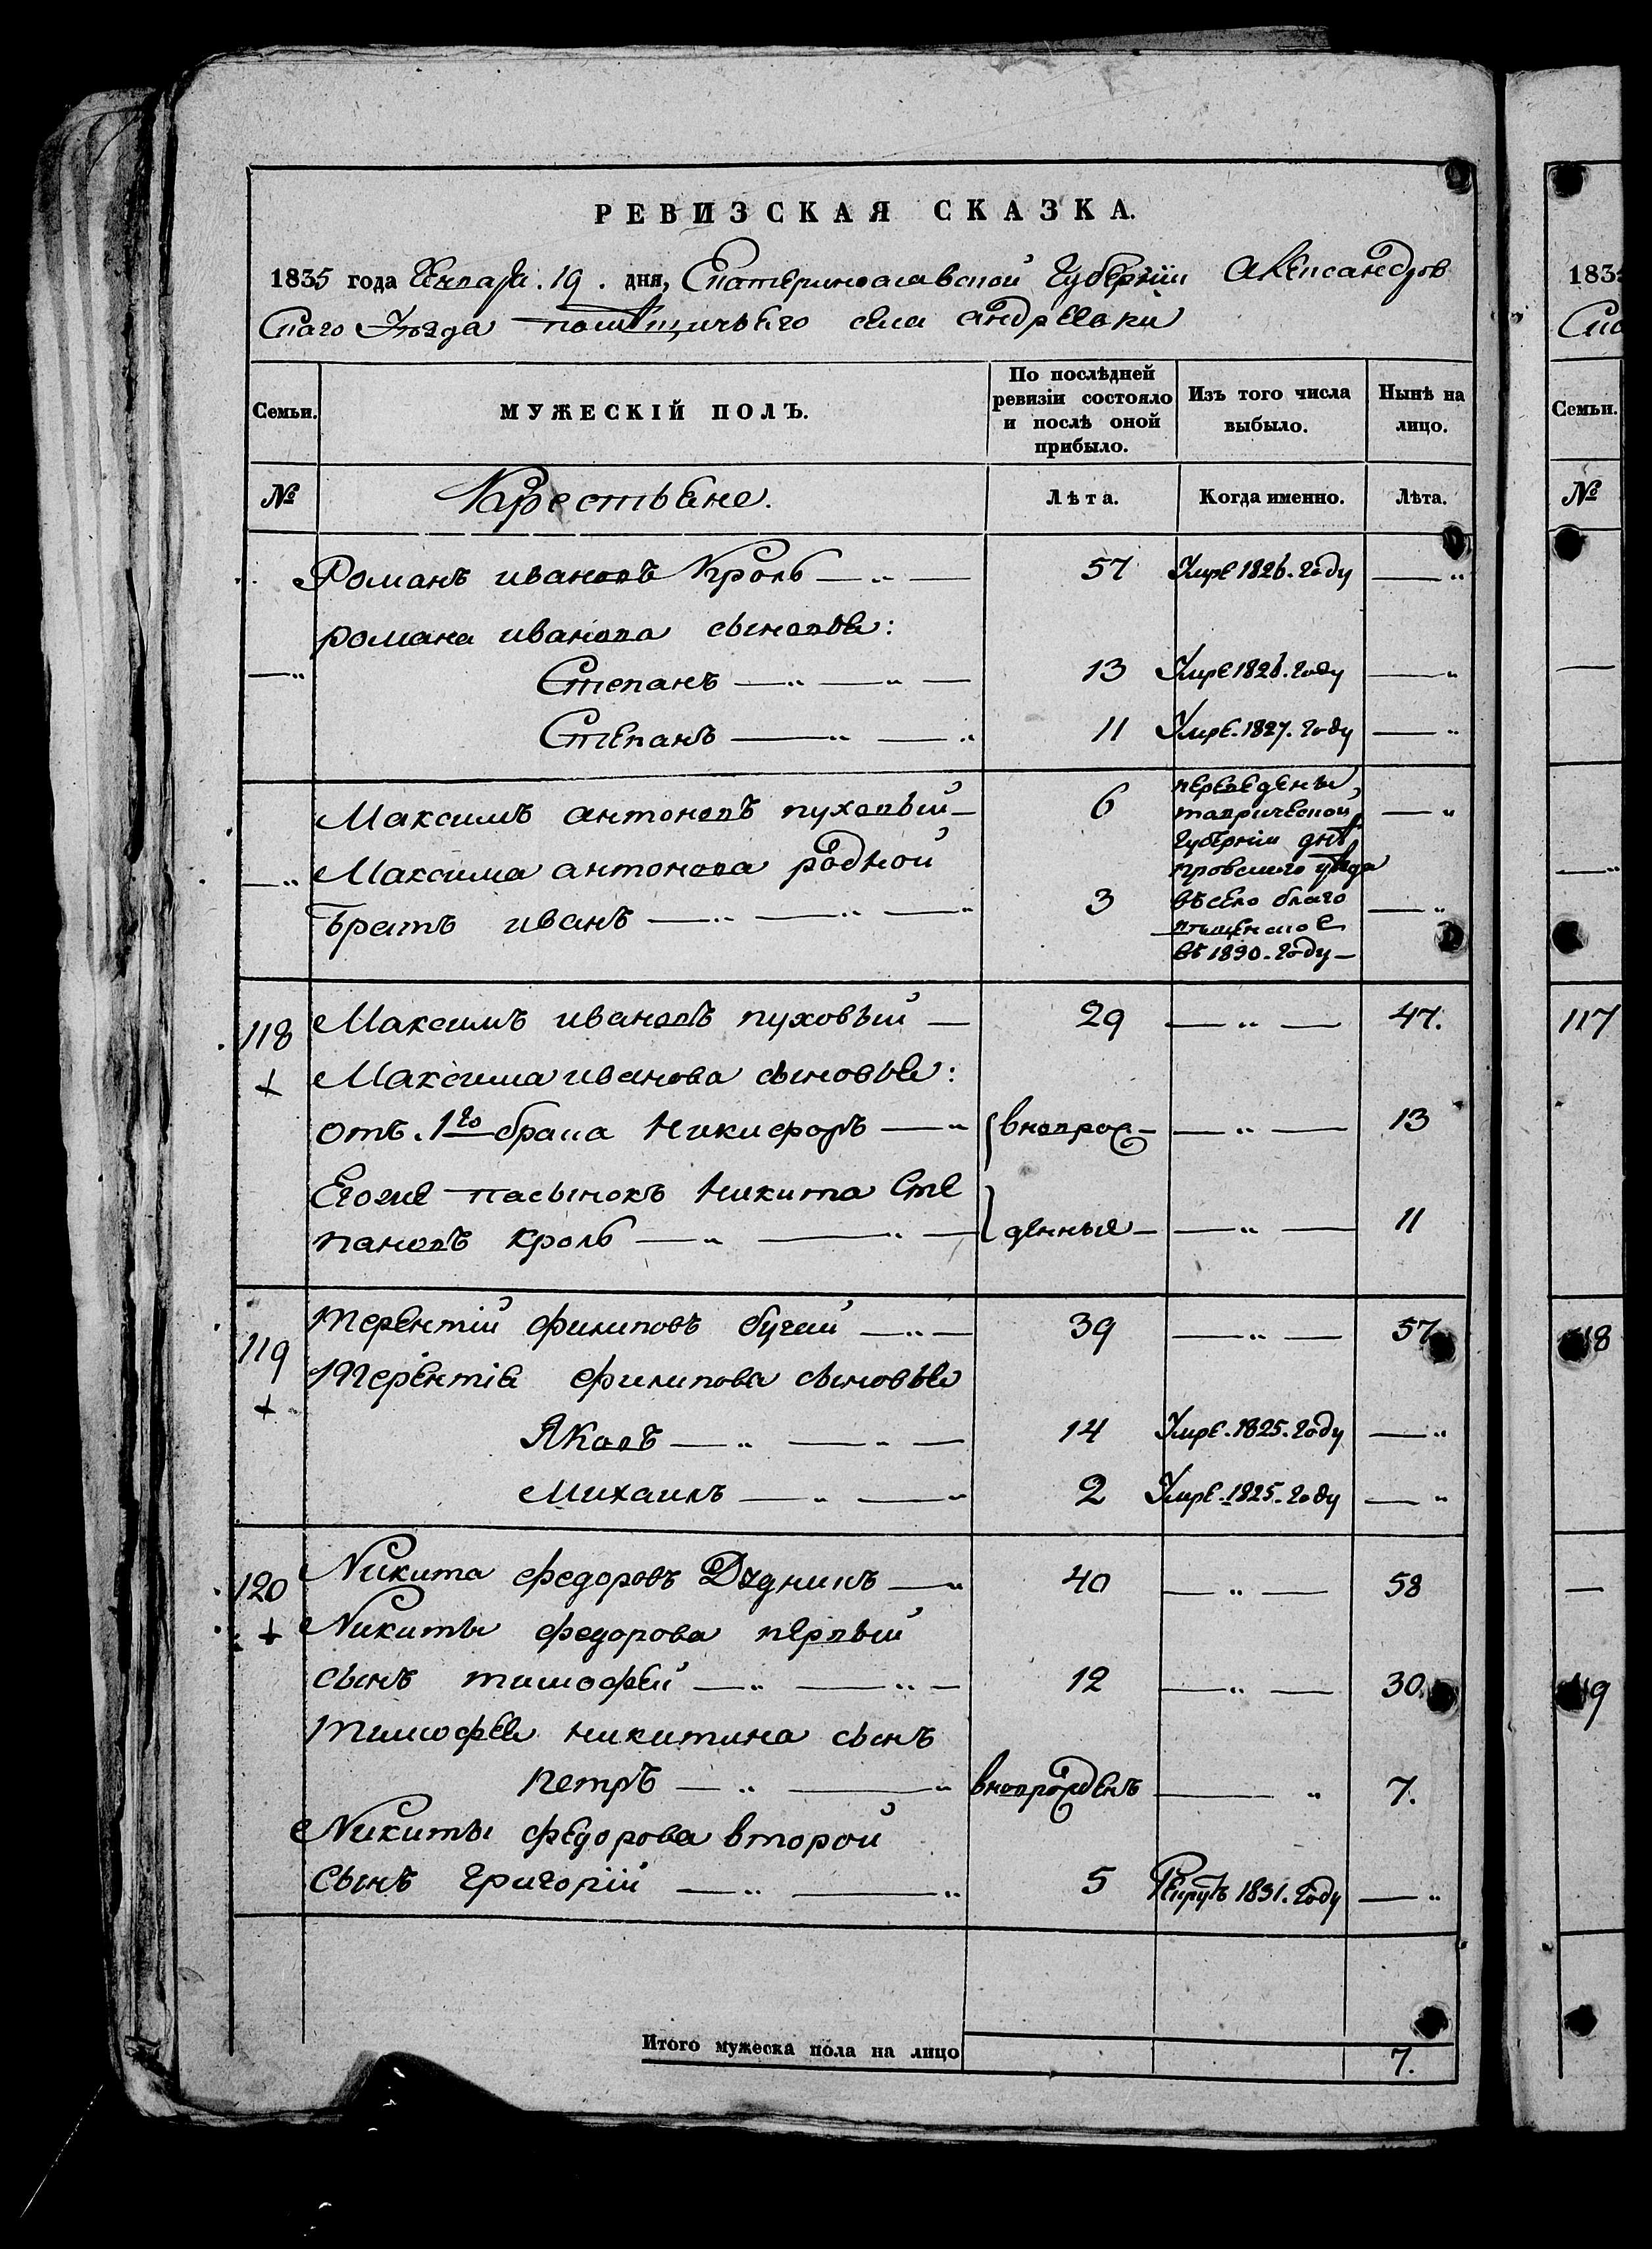 РЕВИЗСКАЯ СКАЗКА.
1835 года Генваря. 19. дня, Екатеринославской Губерніи Александров
скаго Уѣзда помѣщичьяго села андреевки
Семьи. МУЖЕСКІЙ ПОЛЪ. По послѣдней ревизіи состояло и послѣ оной прибыло. Изъ того числа выбыло. Нынѣ на лицо.
№ Крестьяне. Лѣта. Когда именно. Лѣта.
Романъ ивановъ Кроль 57 Умре 1826. году
романа иванова сыновья:
Степанъ 13 Умре 1826. году
Степанъ 11 Умре. 1827. году
Максимъ антоновъ пуховый 6 переведены
таврической
губерніи днѣ
Максима антонова родной
провскаго уѣзда
братъ иванъ 3 въ село благо
вѣщенское
въ 1830. году
118 Максимъ ивановъ пуховый 29 47.
+ Максима иванова сыновья:
отъ. 1го брака никифоръ вновьрож 13
Егоже пасынокъ никита Сте
пановъ кроль денные 11
119 Терентій филиповъ бугай 39 57
+ Терентія филипова сыновья
Яковъ 14 Умре. 1825. году
Михаилъ 2 Умре. 1825. году
120 Никита федоровъ Дудникъ 40 58
+ Никиты федорова первый
сынъ тимофей 12 30
тимофея никитина сынъ
петръ вноврожденъ 7.
Никиты федорова второй
сынъ григорій 5 Рекрутъ 1831. году
Итого мужеска пола на лицо 7.
183
Ско
Семьи.
№
117
118
119